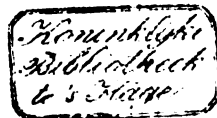 Koninklyke
Bibliotheek
te 's Hage